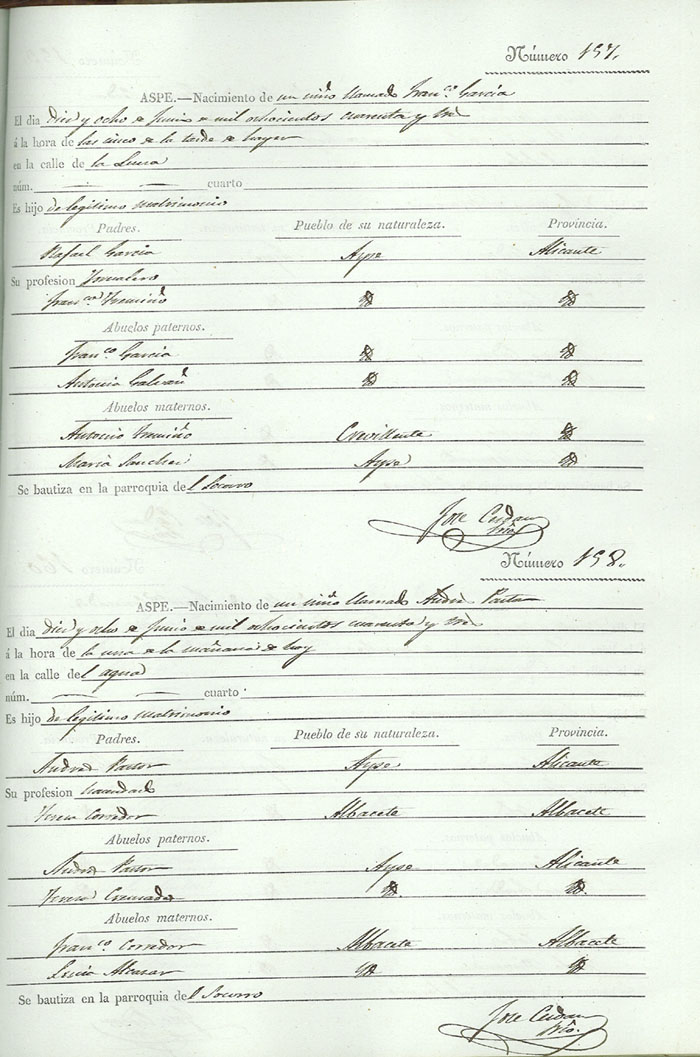 Número 157.
ASPE.—Nacimiento de un niño llamado Fran.co Garcia
El dia diez y ocho de Junio de mil ochocientos cuarenta y tres
á la hora de las cinco de la tarde de hayer
en la calle de la Luna
núm. — — cuarto
Es hijo de legitimo matrimonio
Padres. Pueblo de su naturaleza. Provincia.
Rafael Garcia Aspe Alicante
Su profesion Jornalero
Fran.ca Irmiño Yd Yd
Abuelos paternos.
Fran.co Garcia Yd Yd
Antonia Galvañ Yd Yd
Abuelos maternos.
Antonio Irmiño Crevillente Yd
Maria Sanchez Aspe Yd
Se bautiza en la parroquia del Socorro
Jose Cerdan
Srio.
Número 158.
ASPE.—Nacimiento de un niño llamado Andres Pastor
El dia diez y ocho de Junio de mil ochocientos cuarenta y tres
á la hora de la una de la mañana de hoy
en la calle del agua
núm. — — cuarto
Es hijo de legitimo matrimonio
Padres. Pueblo de su naturaleza. Provincia.
Andres Pastor Aspe Alicante
Su profesion hacendado
Teresa Corredor Albacete Albacete
Abuelos paternos.
Andres Pastor Aspe Alicante
Teresa Cremades Yd Yd
Abuelos maternos.
Fran.co Corredor Albacete Albacete
Lucia Alcazar Yd Yd
Se bautiza en la parroquia del Socorro
Jose Cerdan
Srio.